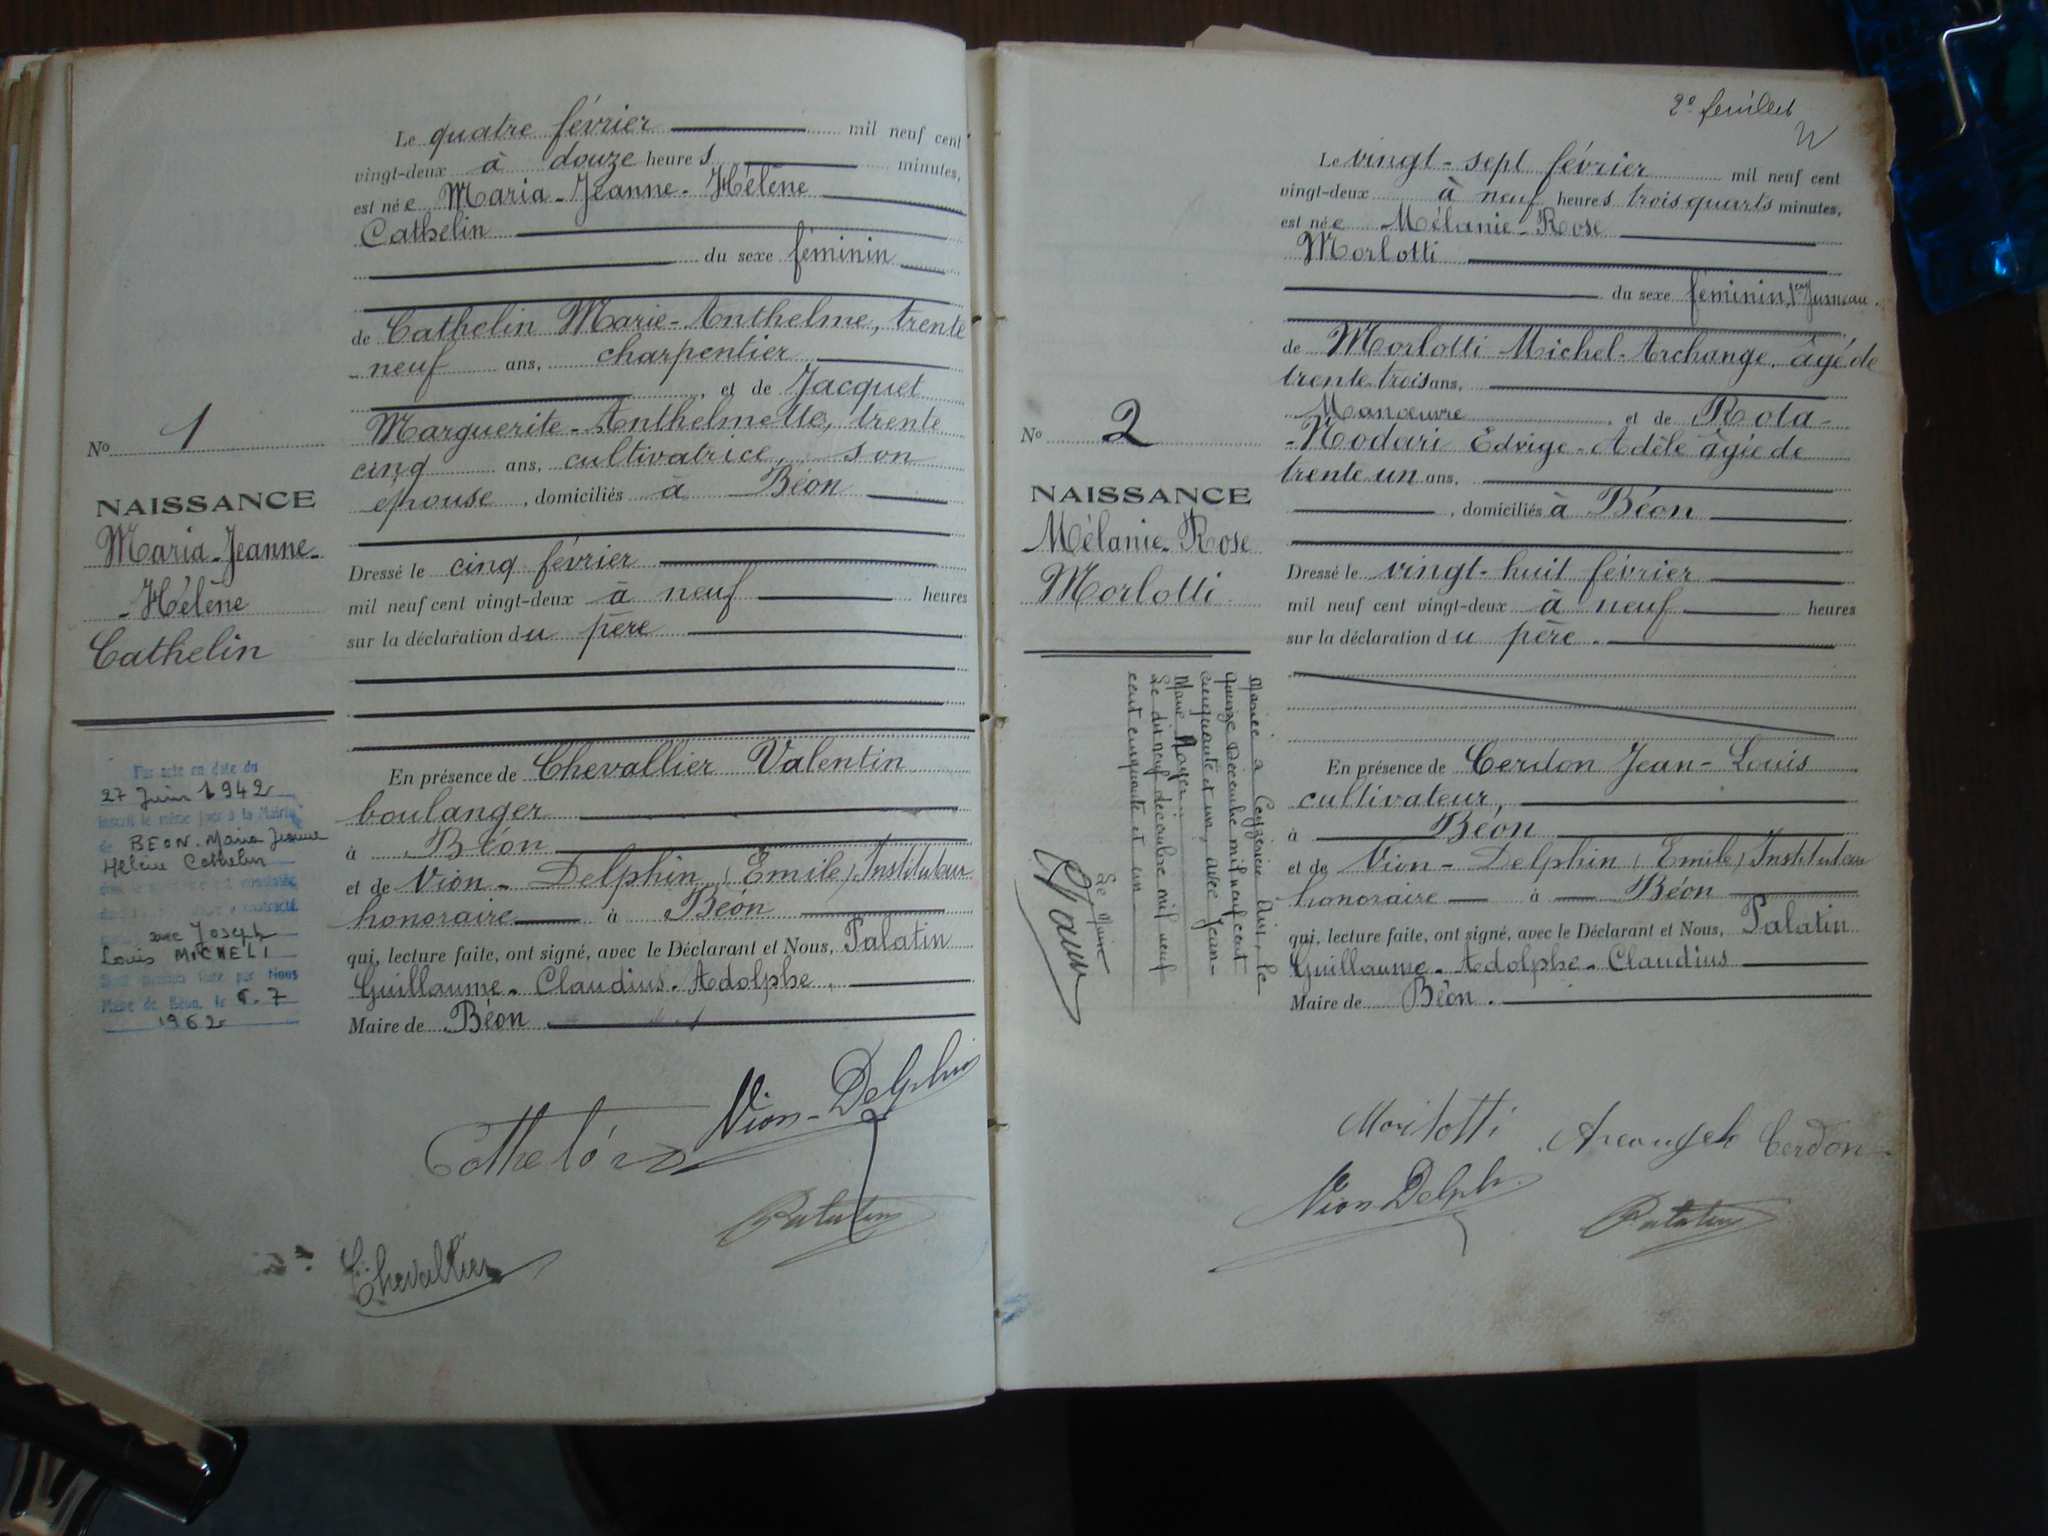 Le quatre février mil neuf cent
vingt-deux à douze heures minutes,
est née Maria-Jeanne-Hélène
Cathelin
du sexe féminin
de Cathelin Marie-Anthelme, trente
neuf ans, charpentier
, et de Jacquet
Marguerite-Anthelmette, trente
cinq ans, cultivatrice, son
épouse, domiciliés à Béon
Dressé le cinq février
mil neuf cent vingt-deux à neuf heures
sur la déclaration du père
En présence de Chevallier Valentin
boulanger
à Béon
et de Vion-Delphin (Emile) Instituteur
honoraire à Béon
qui, lecture faite, ont signé, avec le Déclarant et Nous, Palatin
Guillaume-Claudius-Adolphe,
Maire de Béon
Vion-Delphin
Palatin
Chevallier
No 1
NAISSANCE
Maria-Jeanne-
-Hélène
Cathelin
Par acte en date du
27 Juin 1942
inscrit le même jour à la Mairie
de BEON. Maria Jeanne
Hélène Cathelin
avec Joseph
Louis MICHELI
par Nous
Maire de Béon, le 6.7
1962
2e feuillet
Le vingt-sept février mil neuf cent
vingt-deux à neuf heures trois quarts minutes,
est née Mélanie-Rose
Morlotti
du sexe féminin, 1er Jumeau.
de Morlotti Michel-Archange, âgé de
trente trois ans,
Manœuvre, et de Rota-
-Nodari Edvige-Adèle âgée de
trente un ans,
, domiciliés à Béon
Dressé le vingt-huit février
mil neuf cent vingt-deux à neuf heures
sur la déclaration du père.
En présence de Cerdon Jean-Louis
cultivateur,
à Béon
et de Vion-Delphin (Emile) Instituteur
honoraire à Béon
qui, lecture faite, ont signé, avec le Déclarant et Nous, Palatin
Guillaume-Adolphe-Claudius
Maire de Béon.
Morlotti Cerdon
Vion Delph.
Palatin
No 2
NAISSANCE
Mélanie-Rose
Morlotti
Mariée à Ceyzérieu Ain, le
quinze Décembre mil neuf cent
cinquante et un, avec Jean-
Marie Royer.
Le dix neuf décembre mil neuf
cent cinquante et un
Le Maire